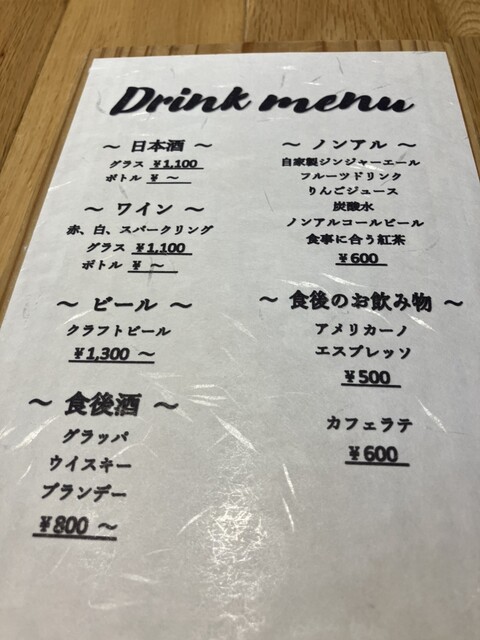 Drink menu
～ 日本酒 ～
グラス ¥1,100
ボトル ¥ ～
～ ワイン ～
赤、白、スパークリング
グラス ¥1,100
ボトル ¥ ～
～ ビール ～
クラフトビール
¥1,300 ～
～ 食後酒 ～
グラッパ
ウイスキー
ブランデー
¥800 ～
～ ノンアル ～
自家製ジンジャーエール
フルーツドリンク
りんごジュース
炭酸水
ノンアルコールビール
食事に合う紅茶
¥600
～ 食後のお飲み物 ～
アメリカーノ
エスプレッソ
¥500
カフェラテ
¥600